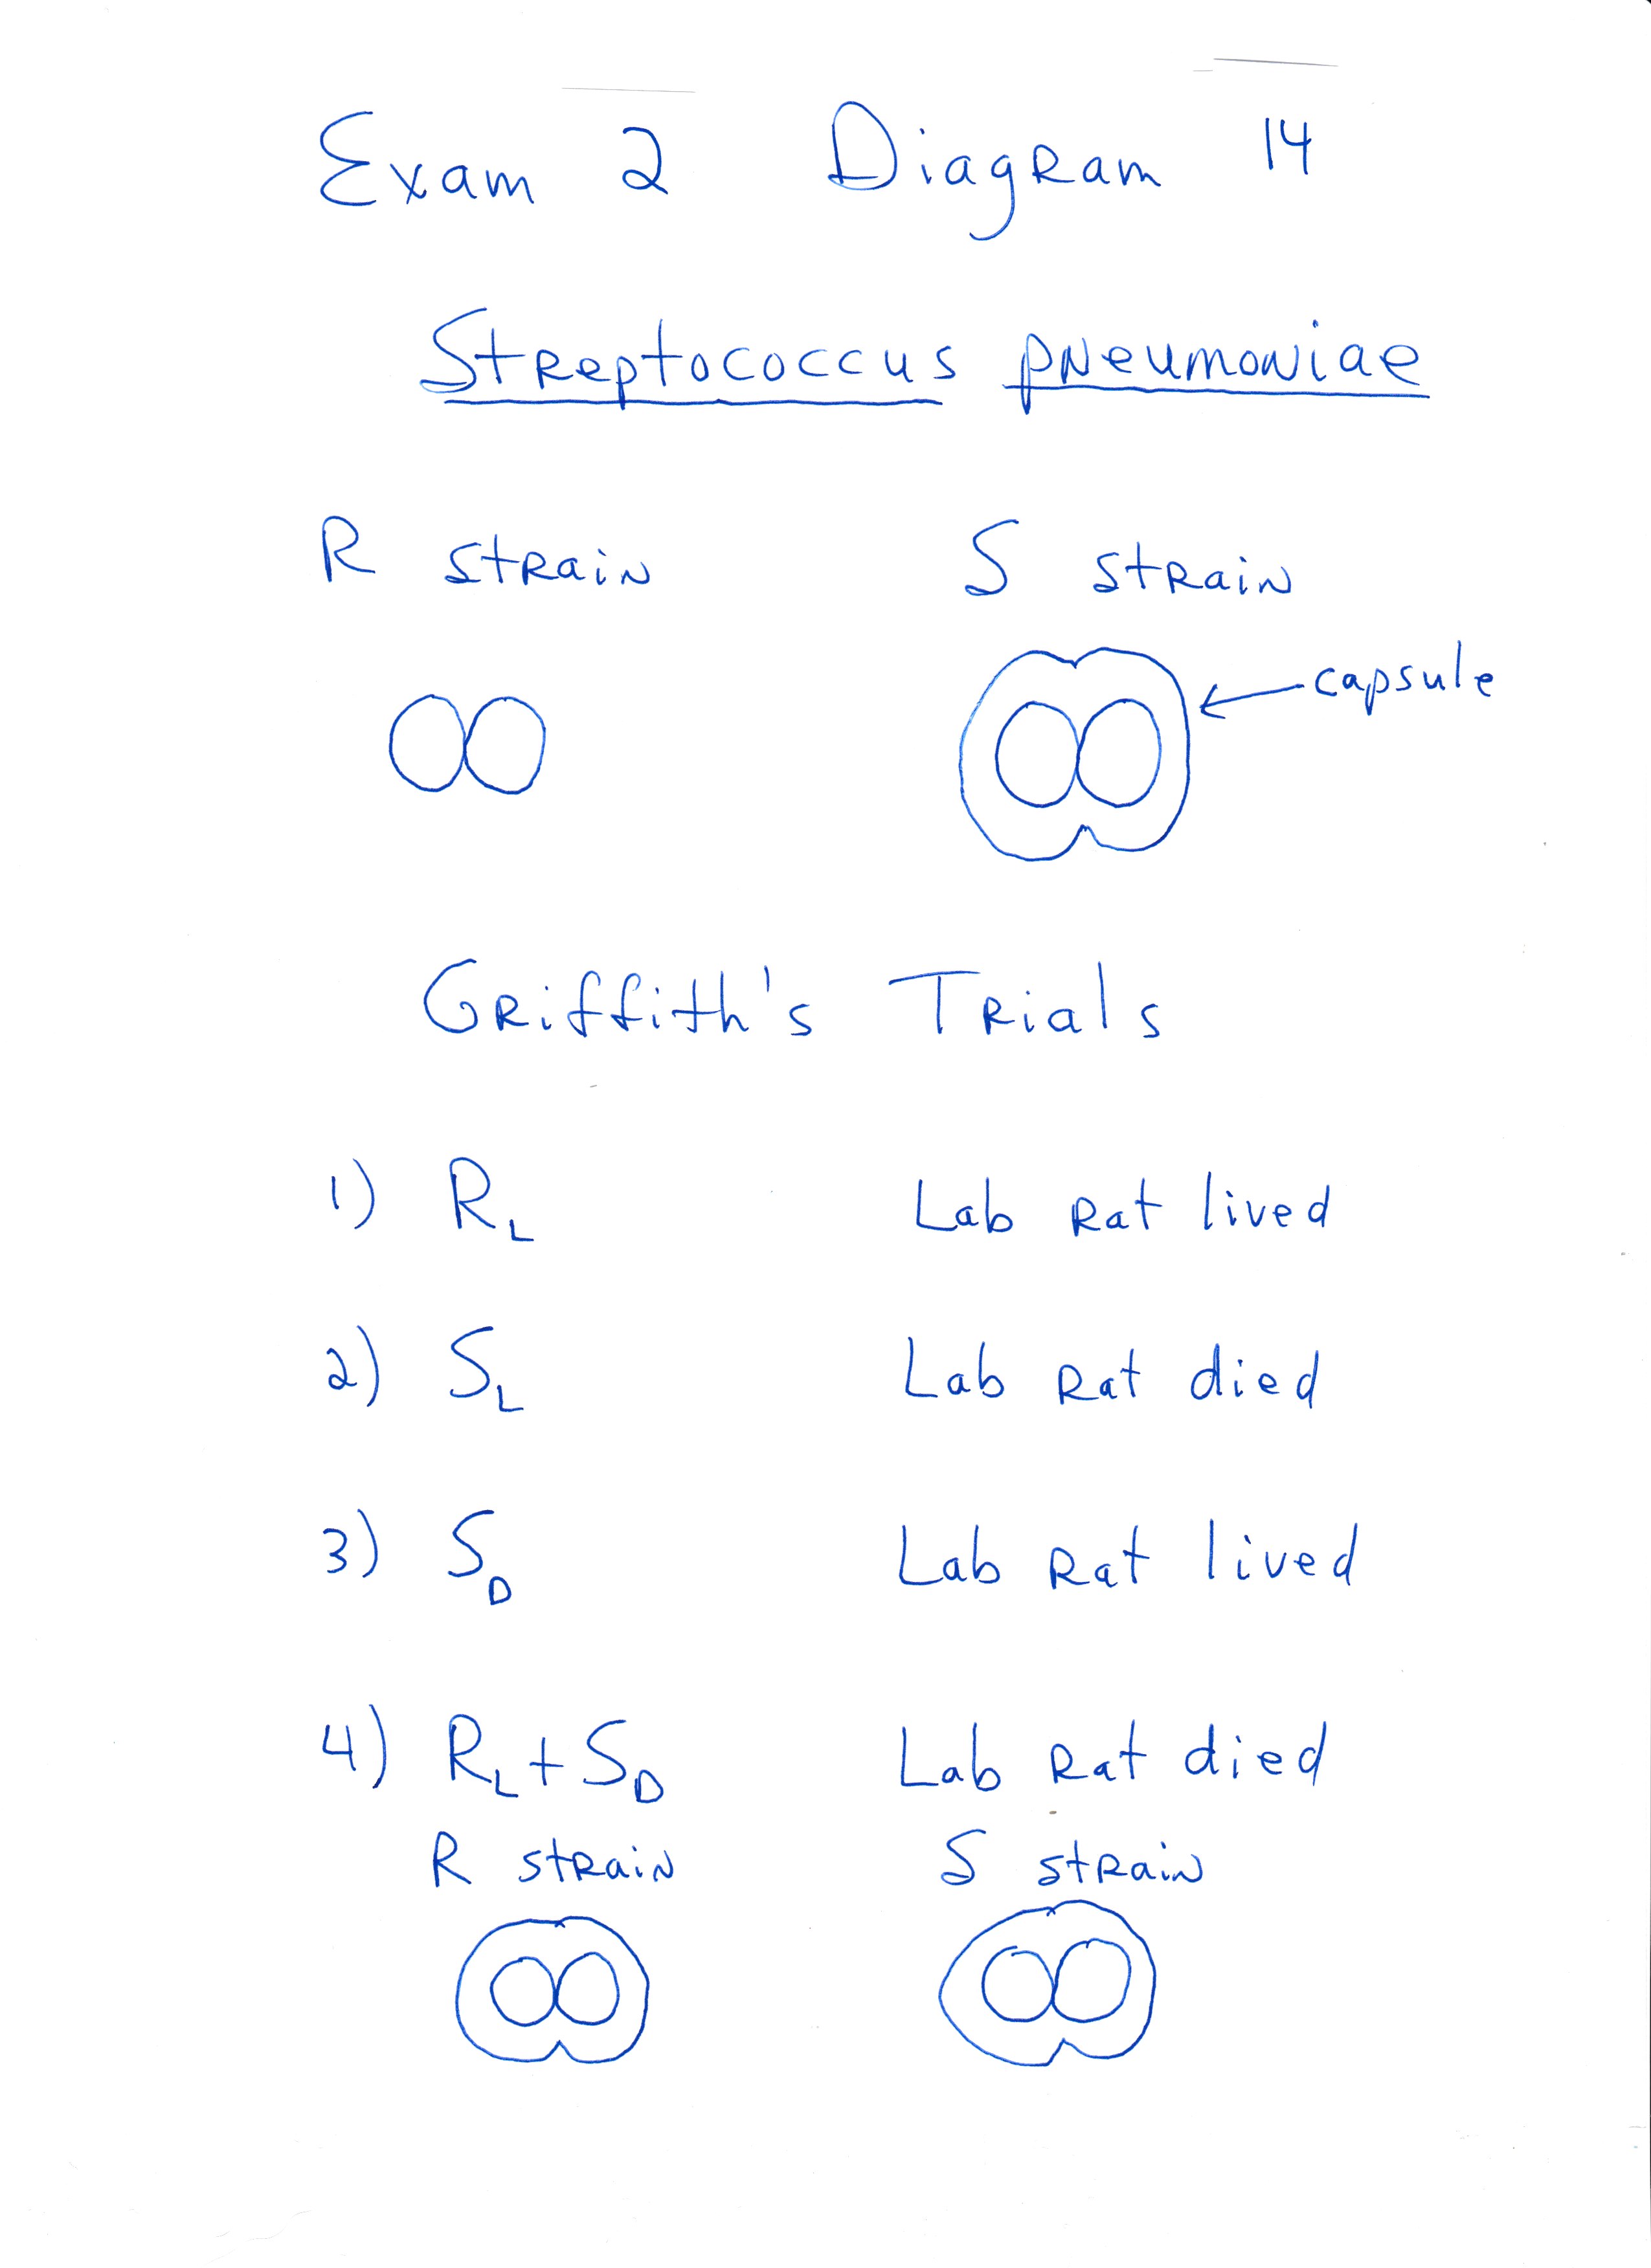 Exam 2 Diagram 14
Streptococcus pneumoniae
R strain S strain
capsule
Griffith's Trials
1) RL Lab Rat lived
2) SL Lab Rat died
3) SD Lab Rat lived
4) RL + SD Lab Rat died
R strain S strain